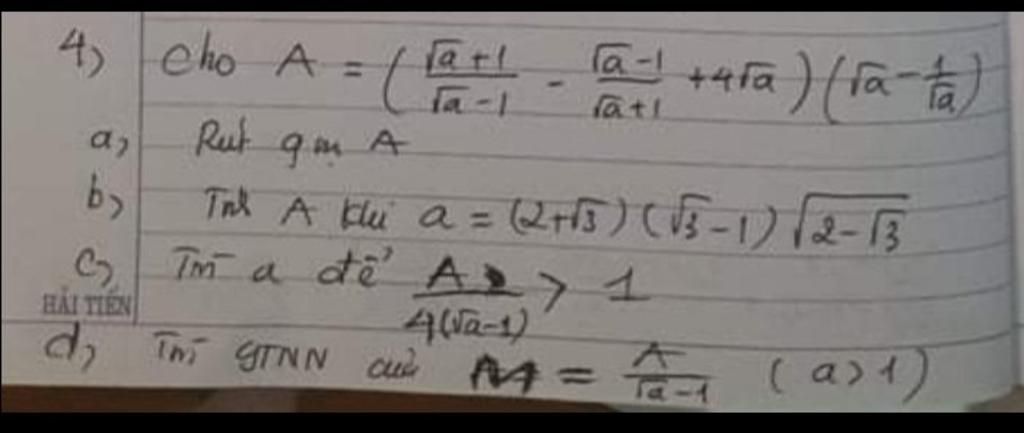 4) Cho A = ( \frac{√a+1}{√a-1} - \frac{√a-1}{√a+1} + 4√a ) ( √a - \frac{1}{√a} )
a, Rút gọn A
b) Tính A khi a = (2+√3) (√3-1) √{2-√3}
c, Tìm a để \frac{A}{4(√a-1)} > 1
HẢI TIẾN
d, Tìm GTNN của M = \frac{A}{√a-1} ( a > 1 )